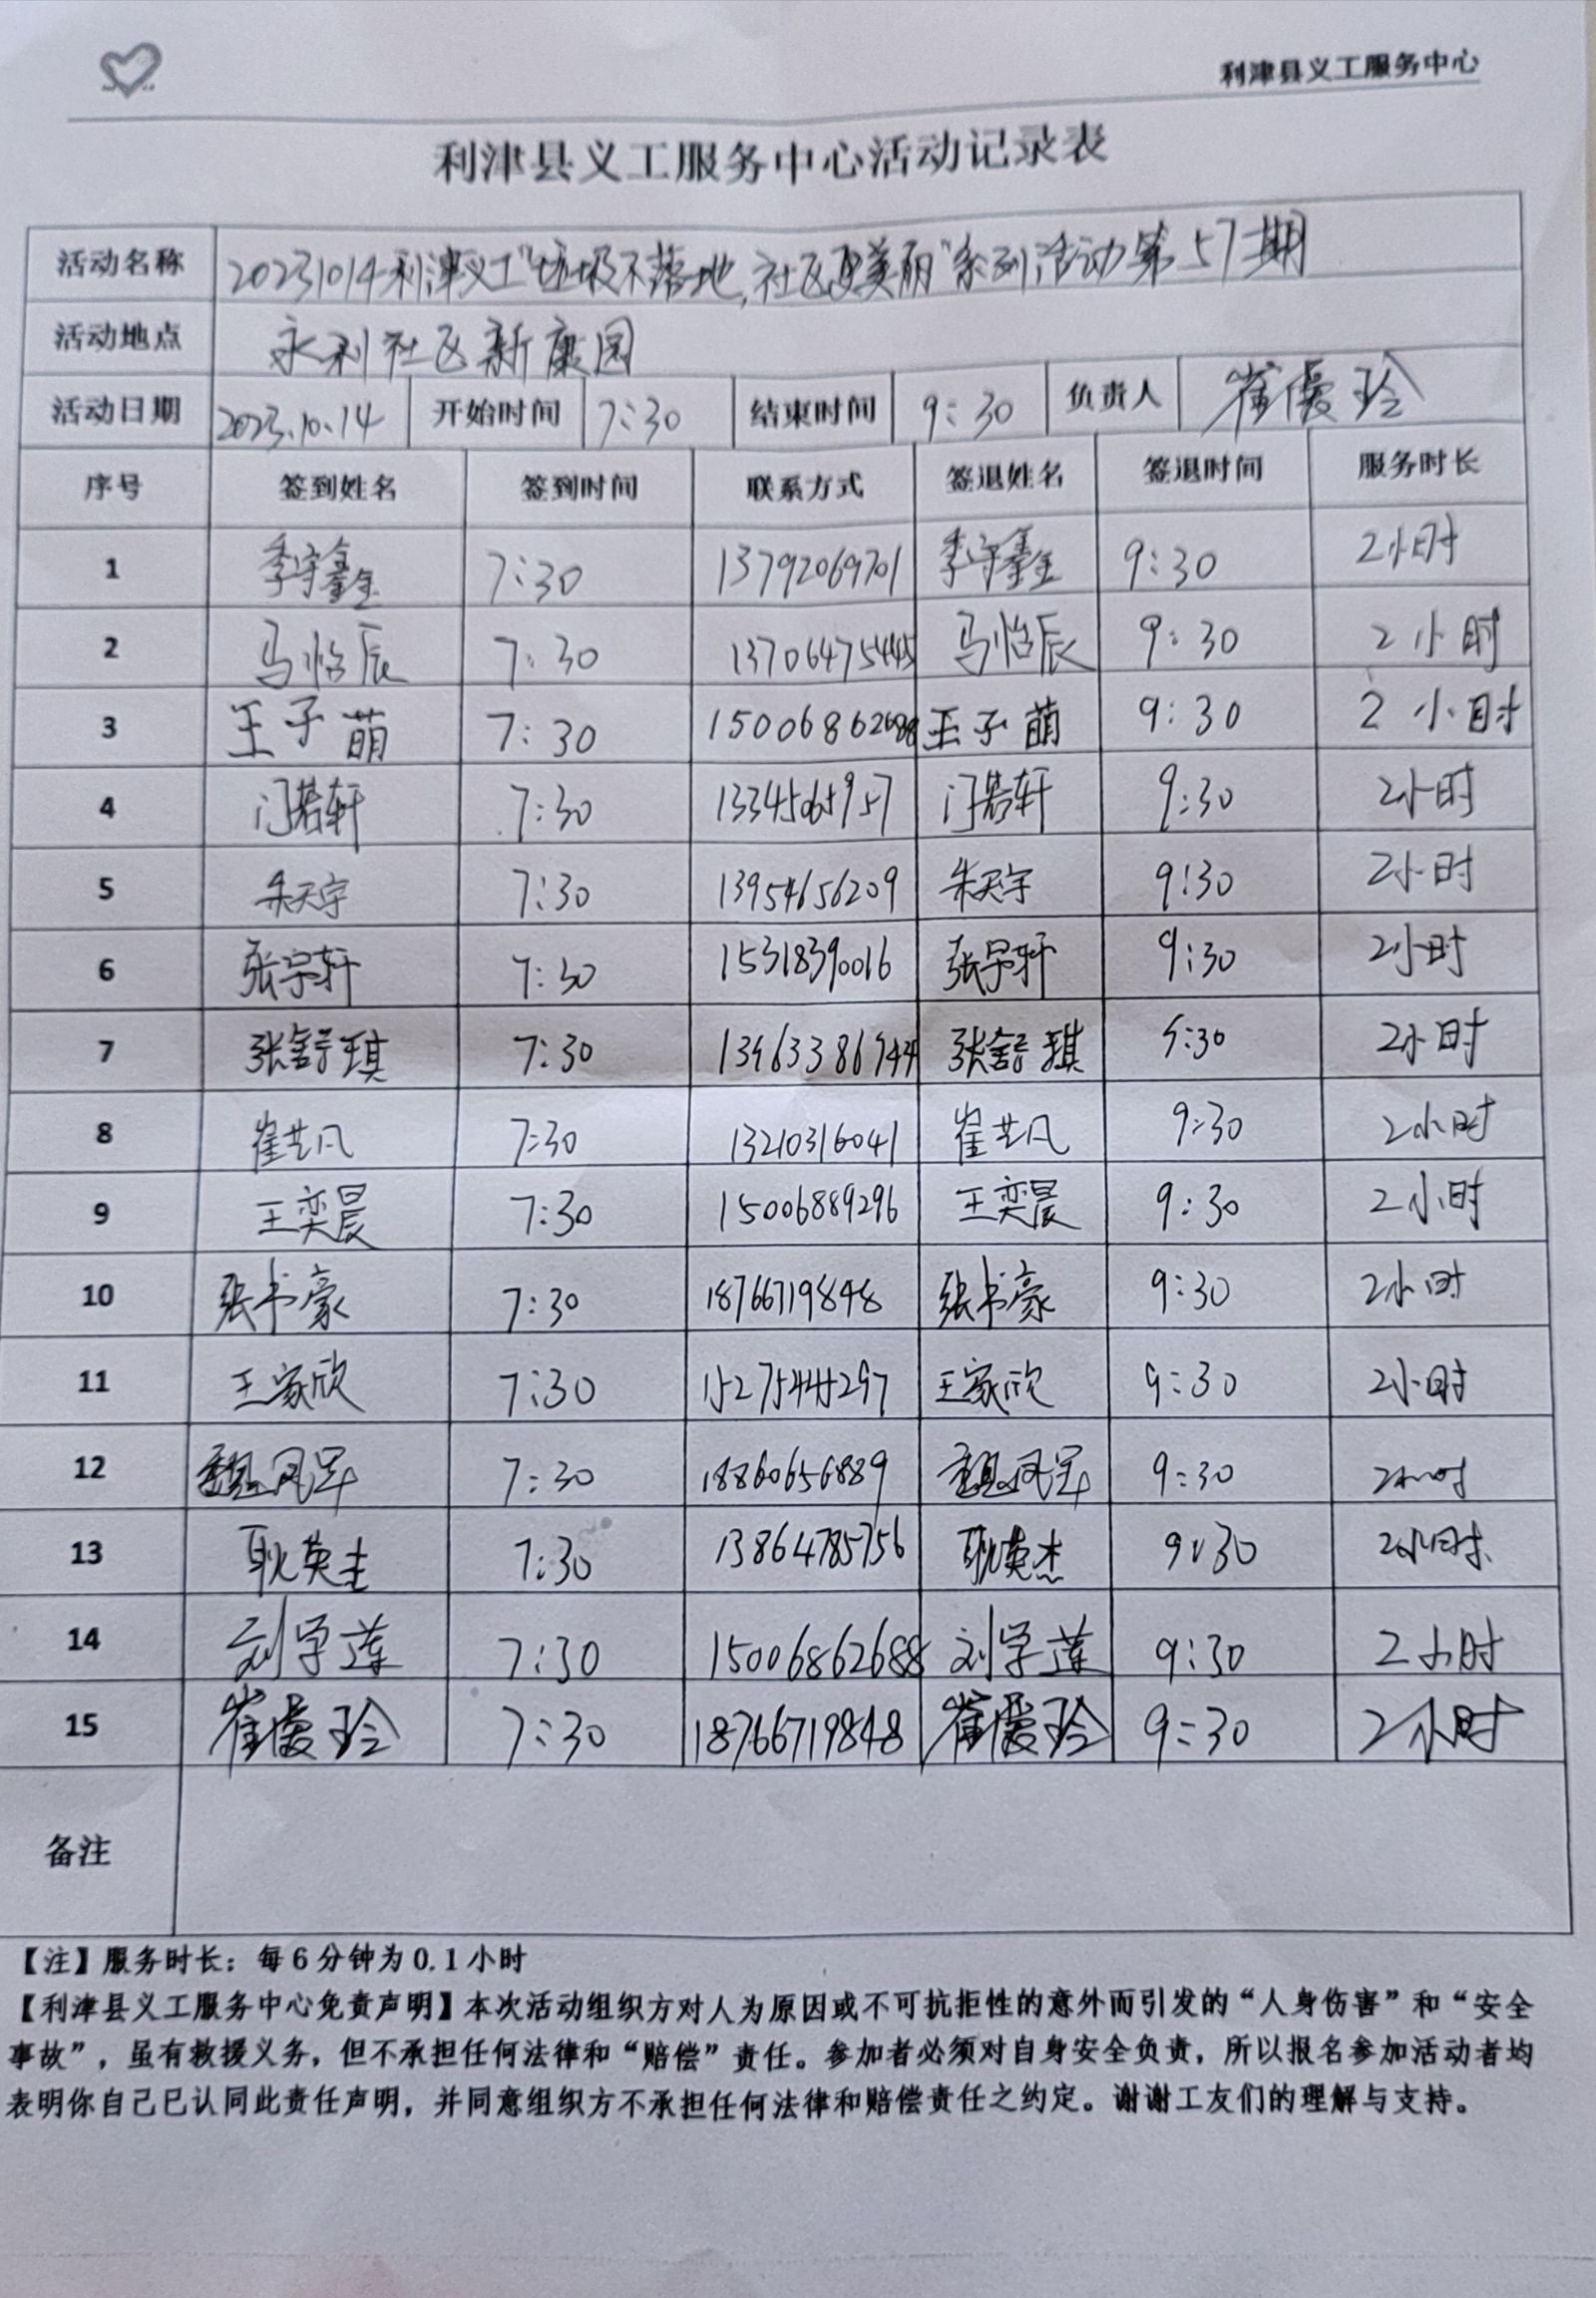 利津县义工服务中心
利津县义工服务中心活动记录表
活动名称 20231014利津义工"垃圾不落地,社区更美丽"系列活动第57期
活动地点 永利社区新康园
活动日期 2023.10.14 开始时间 7:30 结束时间 9:30 负责人 崔爱玲
序号 签到姓名 签到时间 联系方式 签退姓名 签退时间 服务时长
1 季守鑫 7:30 13792069701 季守鑫 9:30 2小时
2 马怡辰 7:30 13706475445 马怡辰 9:30 2小时
3 王子萌 7:30 王子萌 9:30 2小时
4 门若轩 7:30 13345065957 门若轩 9:30 2小时
5 朱天宇 7:30 13954656209 朱天宇 9:30 2小时
6 张宇轩 7:30 15318390016 张宇轩 9:30 2小时
7 张舒琪 7:30 张舒琪 9:30 2小时
8 崔艺凡 7:30 13210316041 崔艺凡 9:30 2小时
9 王奕晨 7:30 15006889296 王奕晨 9:30 2小时
10 张书豪 7:30 18766719848 张书豪 9:30 2小时
11 王家欣 7:30 15275444297 王家欣 9:30 2小时
12 7:30 18860656889 9:30 2小时
13 耿英杰 7:30 13864785756 耿英杰 9:30 2小时
14 刘学莲 7:30 15006862688 刘学莲 9:30 2小时
15 崔爱玲 7:30 18766719848 崔爱玲 9:30 2小时
备注
【注】服务时长：每6分钟为0.1小时
【利津县义工服务中心免责声明】本次活动组织方对人为原因或不可抗拒性的意外而引发的“人身伤害”和“安全
事故”，虽有救援义务，但不承担任何法律和“赔偿”责任。参加者必须对自身安全负责，所以报名参加活动者均
表明你自己已认同此责任声明，并同意组织方不承担任何法律和赔偿责任之约定。谢谢工友们的理解与支持。